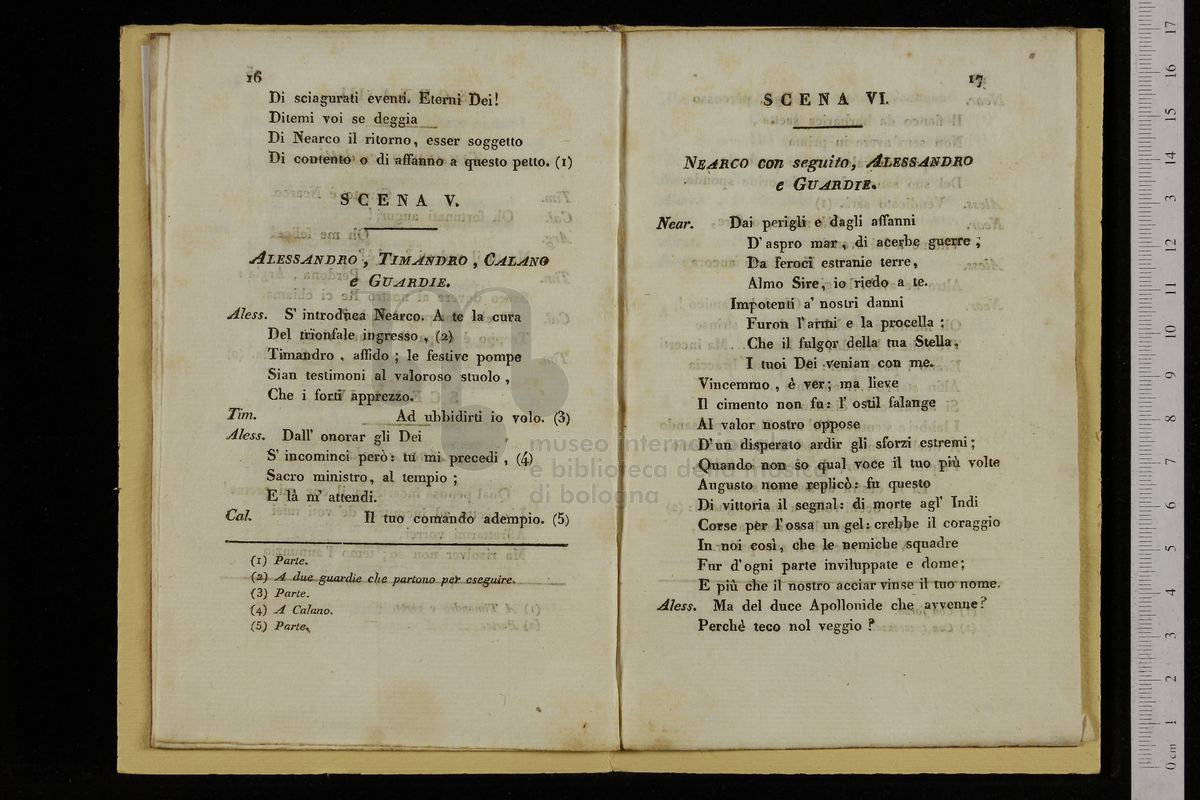 16
Di sciagurati eventi. Eterni Dei!
Ditemi voi se deggia
Di Nearco il ritorno, esser soggetto
Di contento o di affanno a questo petto. (1)
SCENA V.
ALESSANDRO, TIMANDRO, CALANO
e GUARDIE.
Aless. S' introduca Nearco. A te la cura
Del trionfale ingresso, (2)
Timandro, affido; le festive pompe
Sian testimoni al valoroso stuolo,
Che i forti apprezzo.
Tim. Ad ubbidirti io volo. (3)
Aless. Dall' onorar gli Dei
S' incominci però: tu mi precedi, (4)
Sacro ministro, al tempio;
E là m' attendi.
Cal. Il tuo comando adempio. (5)
(1) Parte.
(2) A due guardie che partono per eseguire.
(3) Parte.
(4) A Calano.
(5) Parte.
17
SCENA VI.
NEARCO con seguito, ALESSANDRO
e GUARDIE.
Near. Dai perigli e dagli affanni
D' aspro mar, di acerbe guerre,
Da feroci estranie terre,
Almo Sire, io riedo a te.
Impotenti a' nostri danni
Furon l' armi e la procella:
Che il fulgor della tua Stella,
I tuoi Dei venian con me.
Vincemmo, è ver; ma lieve
Il cimento non fu: l' ostil falange
Al valor nostro oppose
D' un disperato ardir gli sforzi estremi;
Quando non so qual voce il tuo più volte
Augusto nome replicò: fu questo
Di vittoria il segnal: di morte agl' Indi
Corse per l' ossa un gel: crebbe il coraggio
In noi così, che le nemiche squadre
Fur d' ogni parte inviluppate e dome;
E più che il nostro acciar vinse il tuo nome.
Aless. Ma del duce Apollonide che avvenne?
Perchè teco nol veggio?
museo internazionale
e biblioteca della musica
di bologna
0 cm 1 2 3 4 5 6 7 8 9 10 11 12 13 14 15 16 17